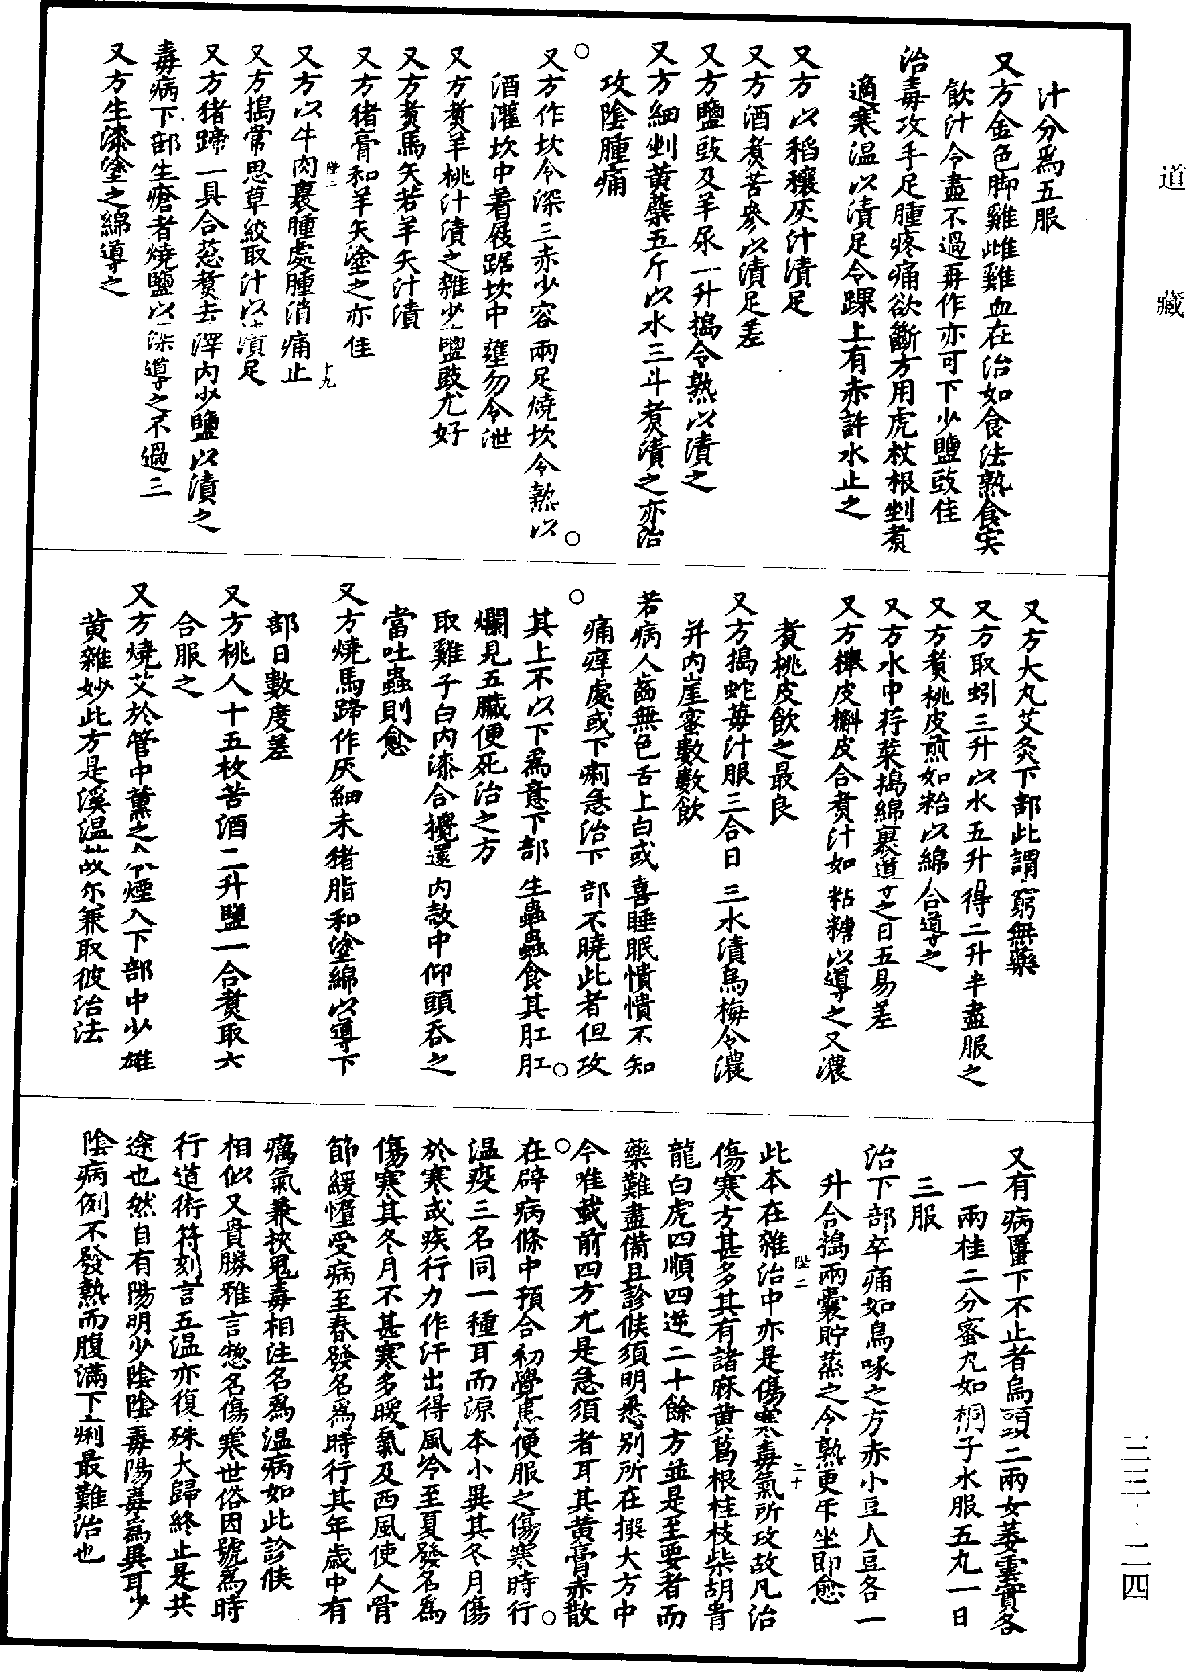 道藏
汁分爲五服
又方金色脚雞雌雞血在治如食法熟食宍
飲汁令盡不過再作亦可下少鹽豉佳
治毒攻手足腫疼痛欲斷方用虎杖根剉煮
適寒温以漬足令踝上有赤許水止之
又方以稻穰灰汁漬足
又方酒煮苦參以漬足差
又方鹽豉及羊尿一升搗令熟以漬之
又方細剉黄蘗五斤以水三斗煮漬之亦治
攻陰腫痛
又方作坎令深三赤少容兩足燒坎令熱以
酒灌坎中着屐踞坎中壅勿令泄
又方煮羊桃汁漬之雜少鹽豉尤好
又方煮馬矢若羊矢汁漬
又方猪膏和羊矢塗之亦佳
陞二 十九
又方以牛肉裹腫處腫消痛止
又方搗常思草絞取汁以漬足
又方猪蹄一具合葱煮去滓内少鹽以漬之
毒病下部生瘡者燒鹽以深導之不過三
又方生漆塗之綿導之
又方大丸艾灸下部此謂窮無藥
又方取蚓三升以水五升得二升半盡服之
又方煮桃皮煎如粘以綿合導之
又方水中荇菜搗綿裹導之日五易差
又方櫸皮槲皮合煮汁如粘糖以導之又濃
煮桃皮飲之最良
又方搗蛇莓汁服三合日三水漬烏梅令濃
并内崖蜜數數飲
若病人齒無色舌上白或喜睡眠憒憒不知
痛痒處或下痢急治下部不曉此者但攻
其上不以下爲意下部生蟲蟲食其肛肛
爛見五臟便死治之方
取雞子白内漆合攪還内殼中仰頭吞之
當吐蟲則愈
又方燒馬蹄作灰細末猪脂和塗綿以導下
部日數度差
又方桃人十五枚苦酒二升鹽一合煮取六
合服之
又方燒艾於管中薰之令煙入下部中少雄
黄雜妙此方是溪温故尔兼取彼治法
又有病䘌下不止者烏頭二兩女萎雲實各
一兩桂二分蜜丸如桐子水服五丸一日
三服
治下部卒痛如鳥啄之方赤小豆人豆各一
升合搗兩囊貯蒸之令熟更互坐即愈
陞二 二十
此本在雜治中亦是傷寒毒氣所攻故凡治
傷寒方甚多其有諸麻黄葛根桂枝柴胡青
龍白虎四順四逆二十餘方並是至要者而
藥難盡備且診候須明悉别所在撰大方中
今唯載前四方尤是急須者耳其黄膏赤散
在辟病條中預合初覺患便服之傷寒時行
温疫三名同一種耳而源本小異其冬月傷
於寒或疾行力作汗出得風冷至夏發名爲
傷寒其冬月不甚寒多暖氣及西風使人骨
節緩墮受病至春發名爲時行其年歲中有
癘氣兼挾鬼毒相注名爲温病如此診候
相似又貴勝雅言惣名傷寒世俗因號爲時
行道術符刻言五温亦復殊大歸終止是共
途也然自有陽明少陰陰毒陽毒爲異耳少
陰病例不發熱而腹滿下痢最難治也
三三-二四